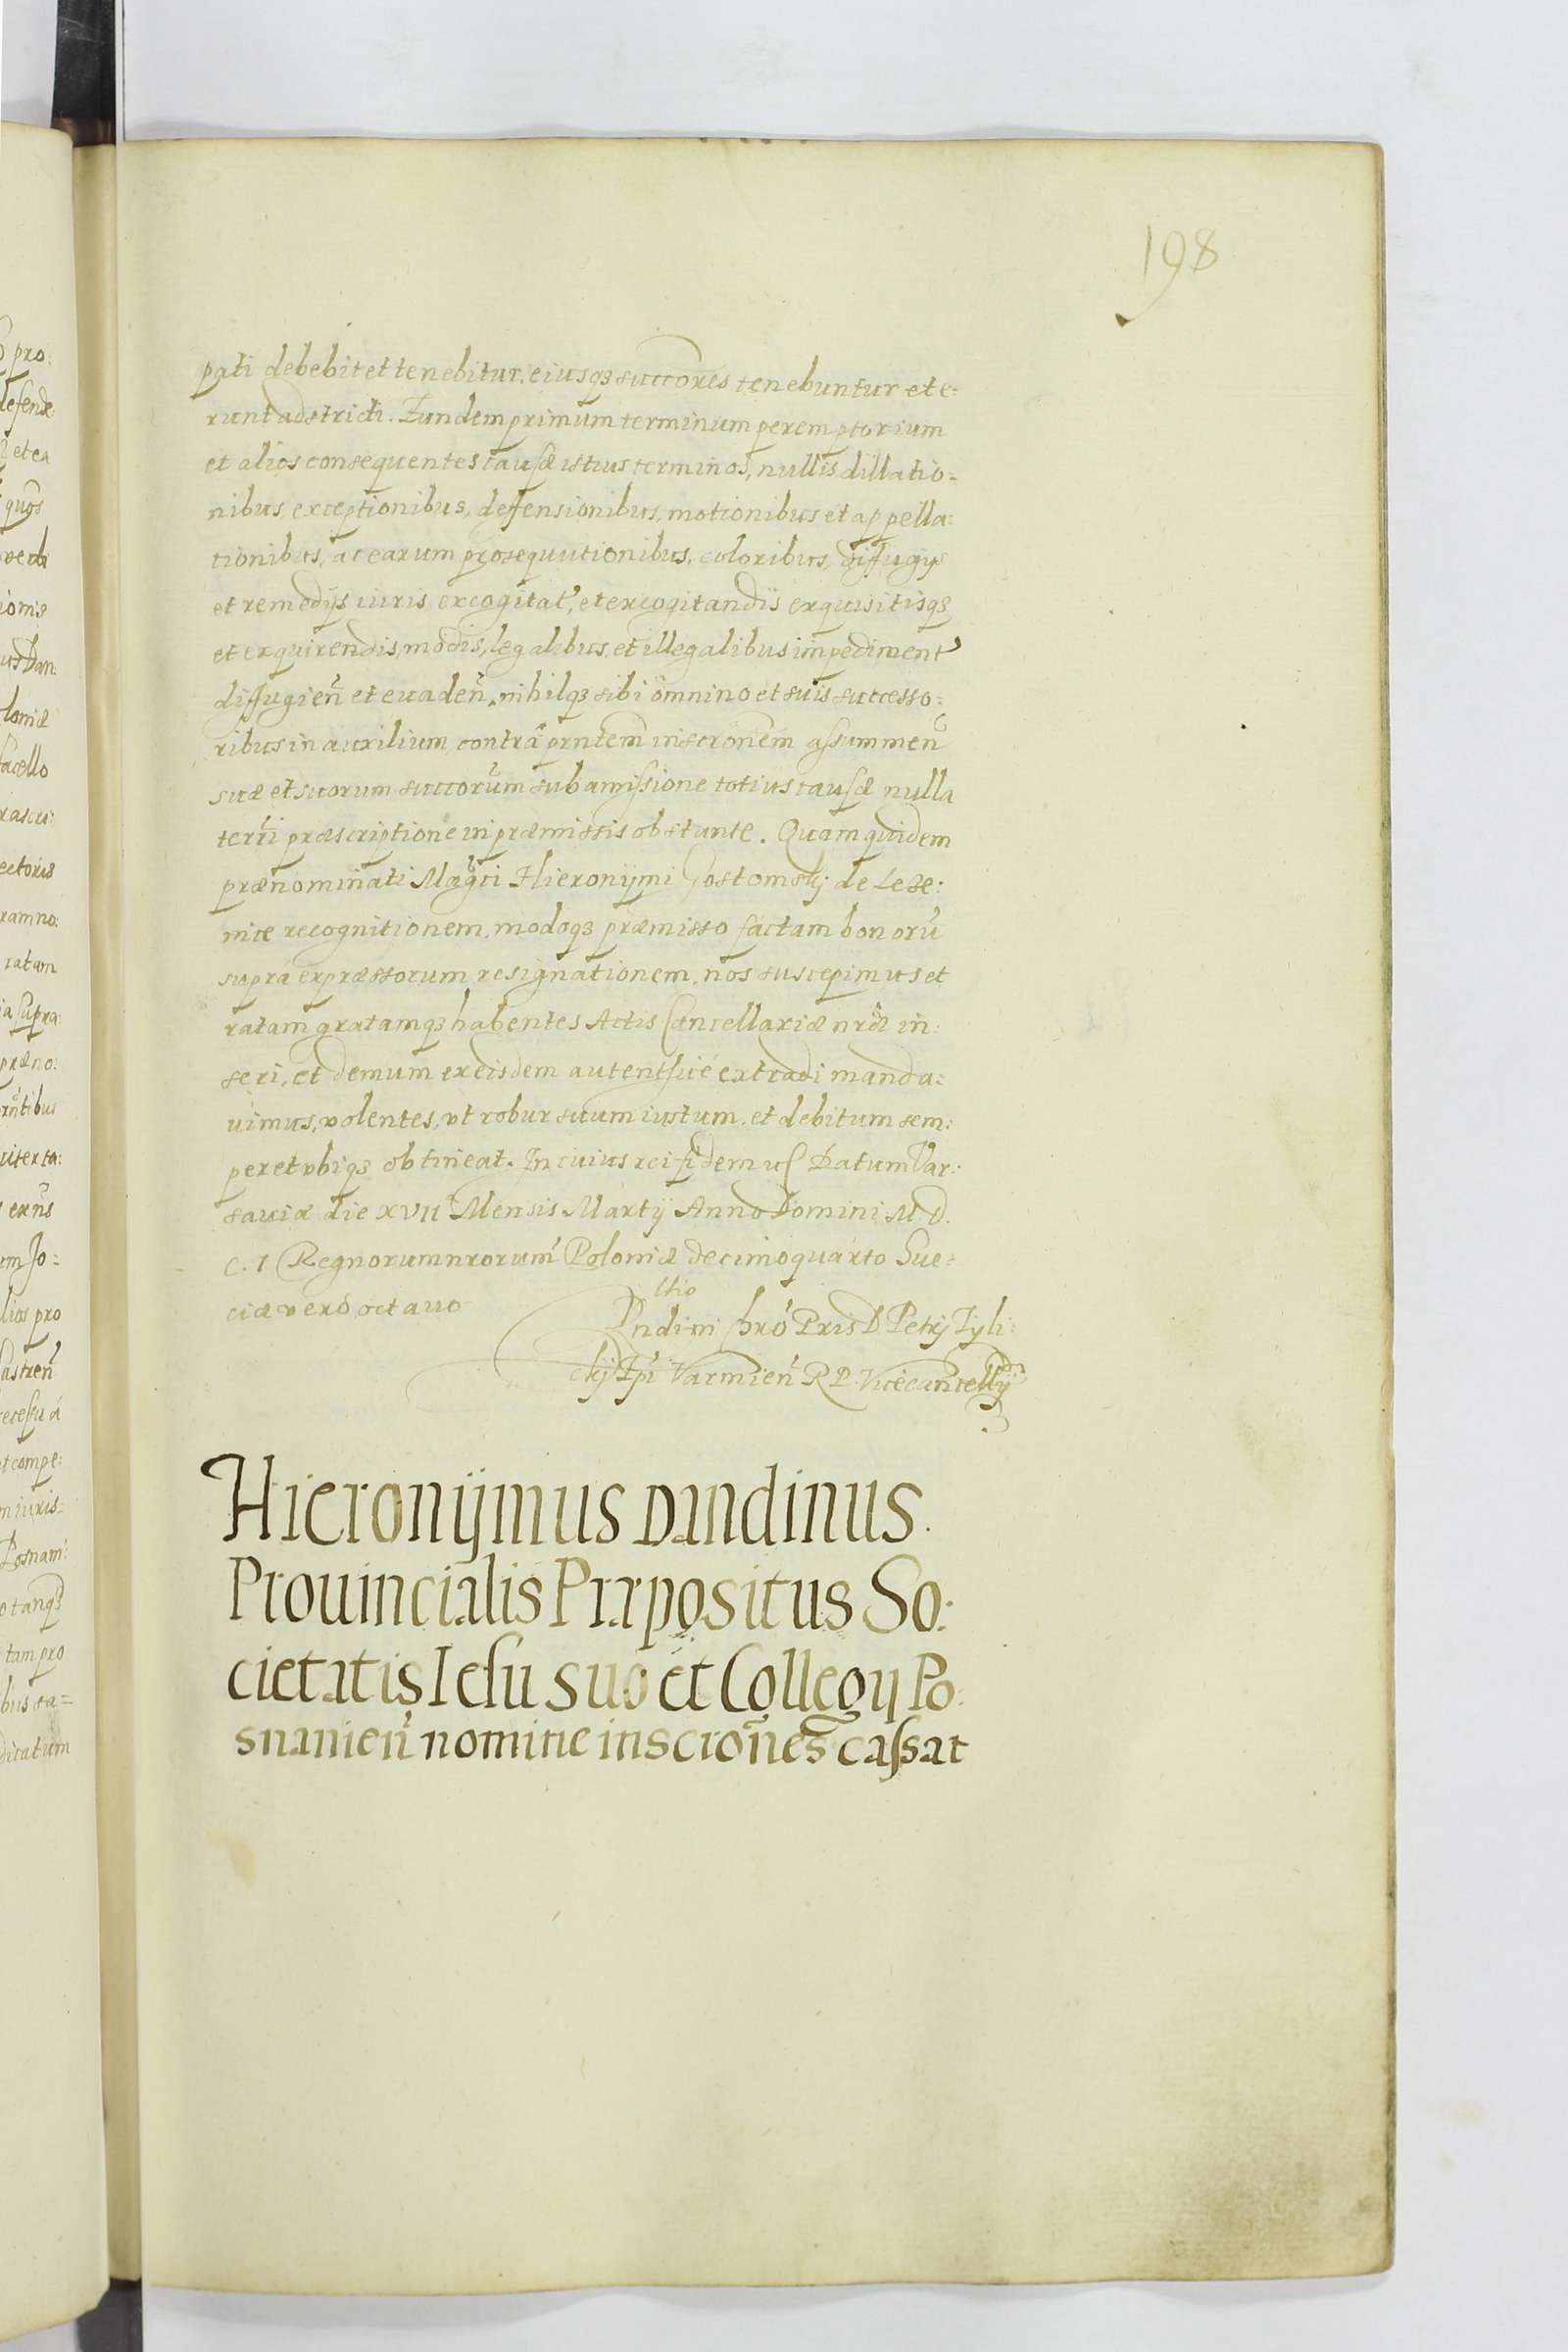 198
pati debebit et tenebitur, eiusqȝ succores tenebuntur et e:
runt adstricti. Eundem primum terminum peremptorium
et alios consequentes causæ istius terminos, nullis dillatio:
nibus, exceptionibus, deffensionibus, motionibus et appella:
tionibus, ac earum prosequutionibus, coloribus, diffugijs
et remedijs iuris excogitat', et excogitandis exquisitisqȝ
et exquirendis, modis, legalibus, et illegalibus impediment'
diffugien̄ et euaden̄, nihilqȝ sibi omnino et suis successo:
ribus in auxilium contra prntem inscronem assummen̄
suæ et suorum succorum sub amissione totius causæ nulla
terri præscriptione in præmissis obstante. Quam quidem
prænominati Magci Hieronijmi Gostomskij de Leze:
nice recognitionem, modoqȝ præmisso factam bonorū
supra expræssorum resignationem, nos suscepimus et
ratam gratamqȝ habentes Actis Cancellariæ nræ in:
seri, et demum ex eisdem autentice extradi manda:
uimus, volentes, vt robur suum iustum, et debitum sem:
per et vbiqȝ obtineat. In cuius rei fidem uſ Datum Var:
sauiæ die XVII Mensis Martij Anno Domini M. D.
C. I Regnorum nrorum Poloniæ decimoquarto Sue:
ciæ vero octauo
Rndimi Chro Pris D Petrj Tyli:
ckj Epi Varmien̄ R P. Vicecancellrij
Hieronijmus Dandinus.
Prouincialis Præpositus So:
cietatis Iesu suo et Collegij Po:
snanien̄ nomine inscrones cassat